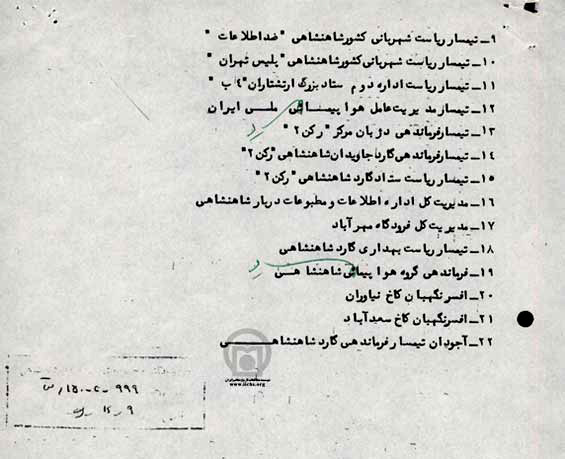 ۹ـ تیمسار ریاست شهربانی کشور شاهنشاهی "ضد اطلاعات"
۱۰ـ تیمسار ریاست شهربانی کشور شاهنشاهی "پلیس تهران"
۱۱ـ تیمسار ریاست اداره دوم ستاد بزرگ ارتشتاران "۴ پ"
۱۲ـ تیمسار مدیریت عامل هواپیمائی ملی ایران
۱۳ـ تیمسار فرماندهی دژبان مرکز "رکن ۲"
۱۴ـ تیمسار فرماندهی گارد جاویدان شاهنشاهی "رکن ۲"
۱۵ـ تیمسار ریاست ستاد گارد شاهنشاهی "رکن ۲"
۱۶ـ مدیریت کل اداره اطلاعات و مطبوعات دربار شاهنشاهی
۱۷ـ مدیریت کل فرودگاه مهرآباد
۱۸ـ تیمسار ریاست بهداری گارد شاهنشاهی
۱۹ـ فرماندهی گروه هواپیمائی شاهنشاهی
۲۰ـ افسر نگهبان کاخ نیاوران
۲۱ـ افسر نگهبان کاخ سعدآباد
۲۲ـ آجودان تیمسار فرماندهی گارد شاهنشاهی
www.iichs.org